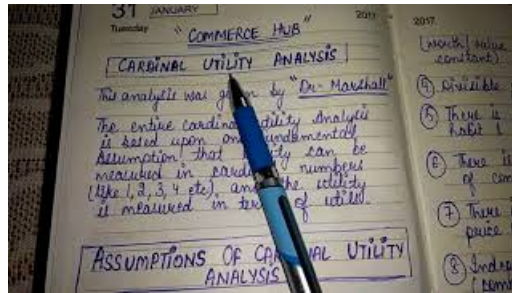 31 JANUARY
Tuesday
2017
"COMMERCE HUB"
CARDINAL UTILITY ANALYSIS
This analysis was given by "Dr. Marshall"
The entire cardinal utility Analysis
is based upon one fundamental
Assumption that utility can be
measured in cardinal numbers
(like 1, 2, 3, 4 etc), and the utility
is measured in terms of utils.
ASSUMPTIONS OF CARDINAL UTILITY
ANALYSIS
2017
(worth/value
constant)
④ Divisible
⑤ There is
habit
⑥ There is
of com
⑦ There
price
⑧ Inde